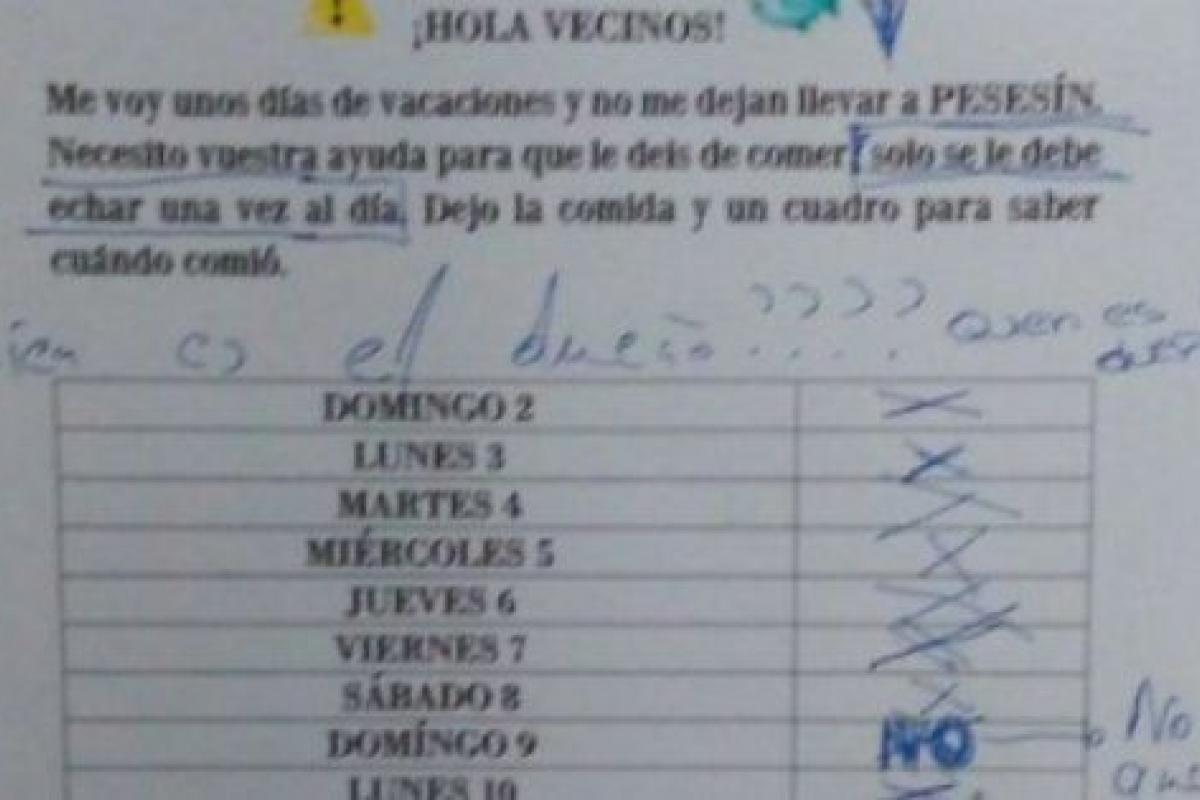 ¡HOLA VECINOS!
Me voy unos días de vacaciones y no me dejan llevar a PESESÍN.
Necesito vuestra ayuda para que le deis de comer, solo se le debe
echar una vez al día. Dejo la comida y un cuadro para saber
cuándo comió.
es el dueño ????
es
DOMINGO 2 X
LUNES 3 X
MARTES 4 X
MIÉRCOLES 5 X
JUEVES 6 X
VIERNES 7 X
SÁBADO 8 X
DOMÍNGO 9 NO
No
LUNES 10